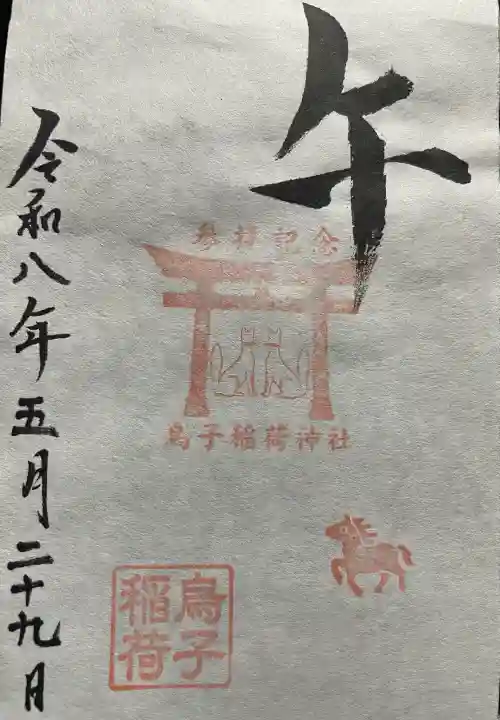 午
参拝記念
烏子稲荷神社
烏子
稲荷
令和八年五月二十九日